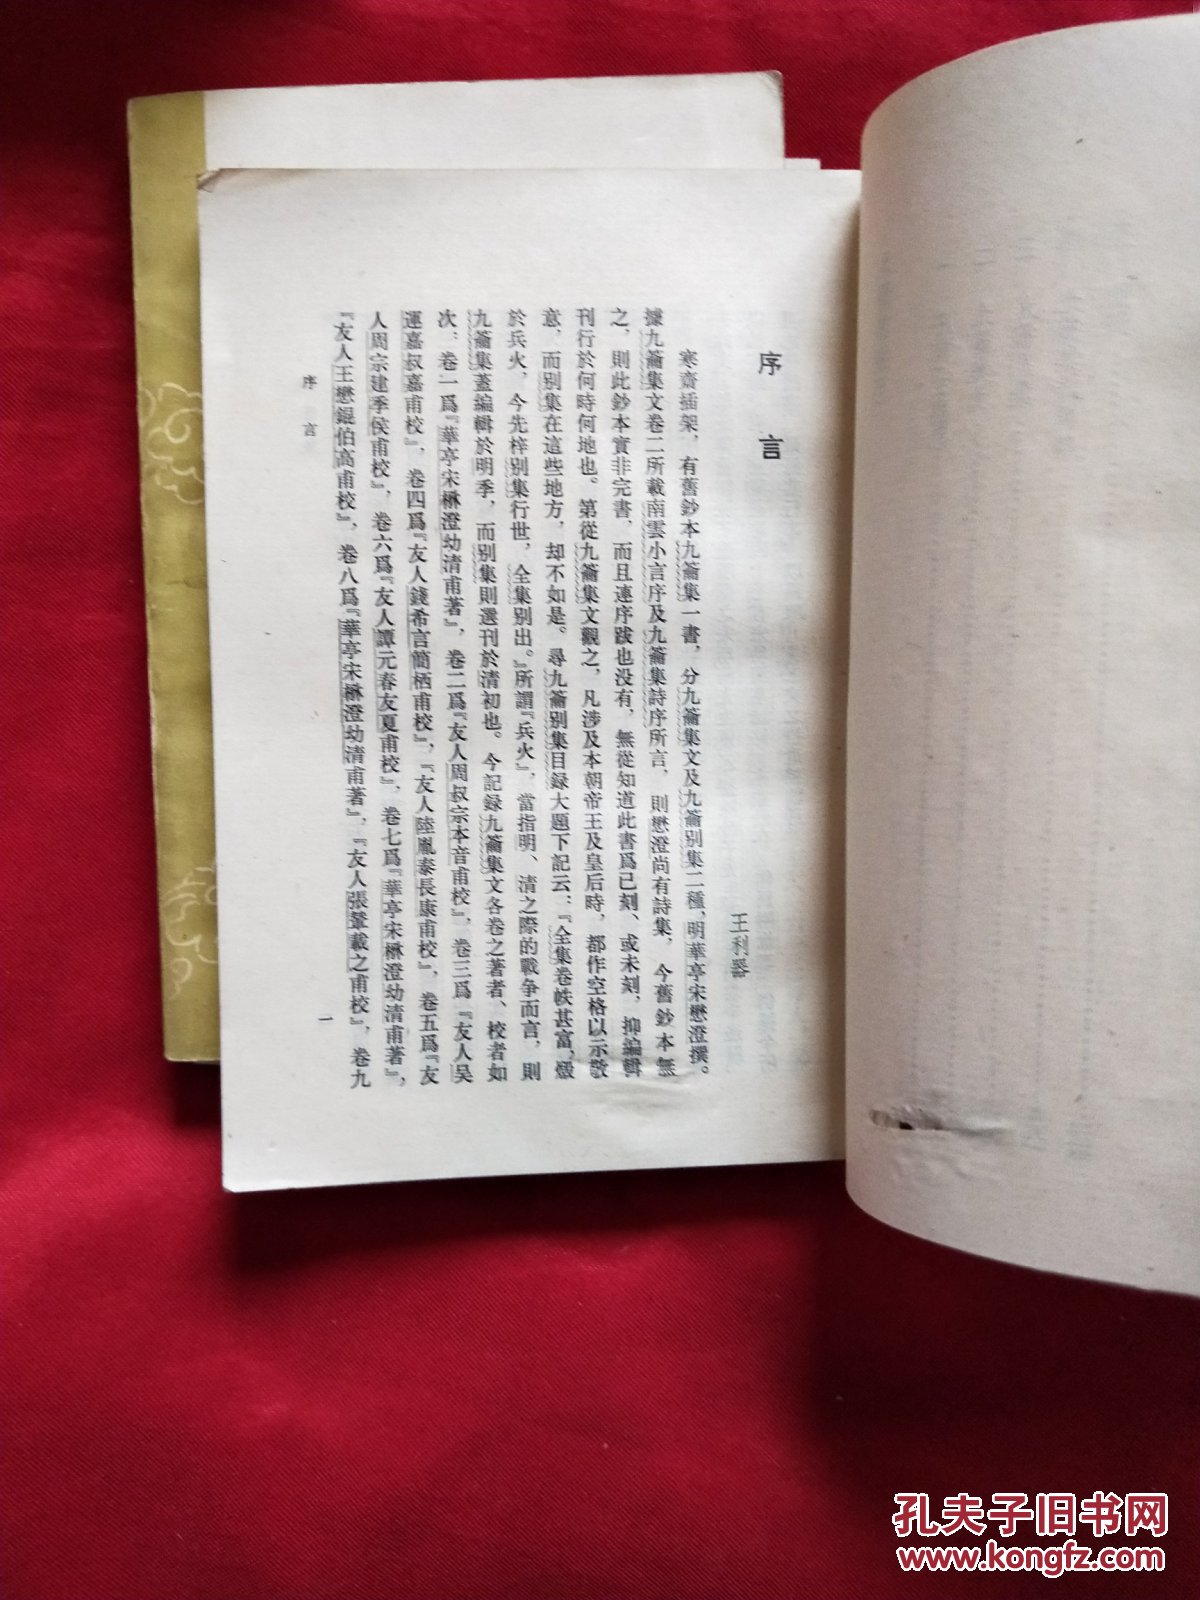 序言
王利器
寒齋插架，有舊鈔本九籥集一書，分九籥集文及九籥別集二種，明華亭宋懋澄撰。
據九籥集文卷二所載南雲小言序及九籥集詩序所言，則懋澄尚有詩集，今舊鈔本無
之，則此鈔本實非完書，而且連序跋也没有，無從知道此書爲已刻、或未刻，抑編輯
刊行於何時何地也。第從九籥集文觀之，凡涉及本朝帝王及皇后時，都作空格以示敬
意，而別集在這些地方，却不如是。尋九籥別集目録大題下記云：『全集卷帙甚富，燬
於兵火，今先梓別集行世，全集别出。』所謂『兵火』，當指明、清之際的戰争而言，則
九籥集蓋編輯於明季，而別集則選刊於清初也。今記録九籥集文各卷之著者、校者如
次，卷一爲『華亭宋楙澄幼清甫著』，卷二爲『友人周叔宗本音甫校』，卷三爲『友人吴
運嘉叔嘉甫校』，卷四爲『友人錢希言簡栖甫校』，『友人陸胤泰長康甫校』，卷五爲『友
人周宗建季侯甫校』，卷六爲『友人譚元春友夏甫校』，卷七爲『華亭宋楙澄幼清甫著』，
『友人王懋錕伯高甫校』，卷八爲『華亭宋楙澄幼清甫著』，『友人張肇載之甫校』，卷九
序言
一
孔夫子旧书网
www.kongfz.com